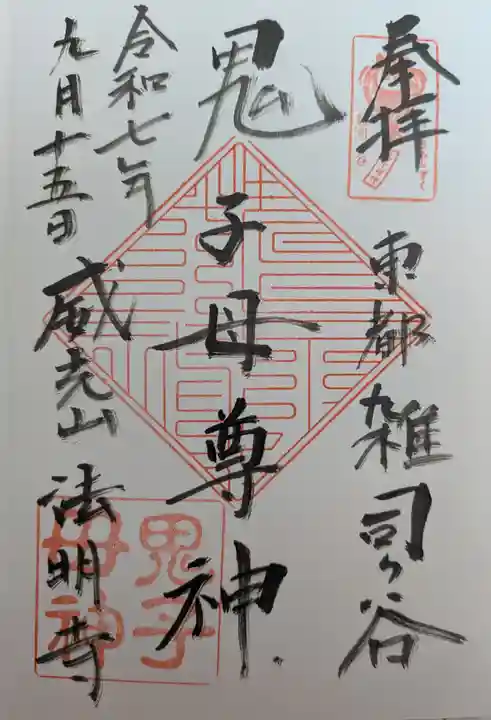 奉拝
東都雑司ヶ谷
鬼子母尊神
令和七年
九月十五日
威光山法明寺
鬼子
母神